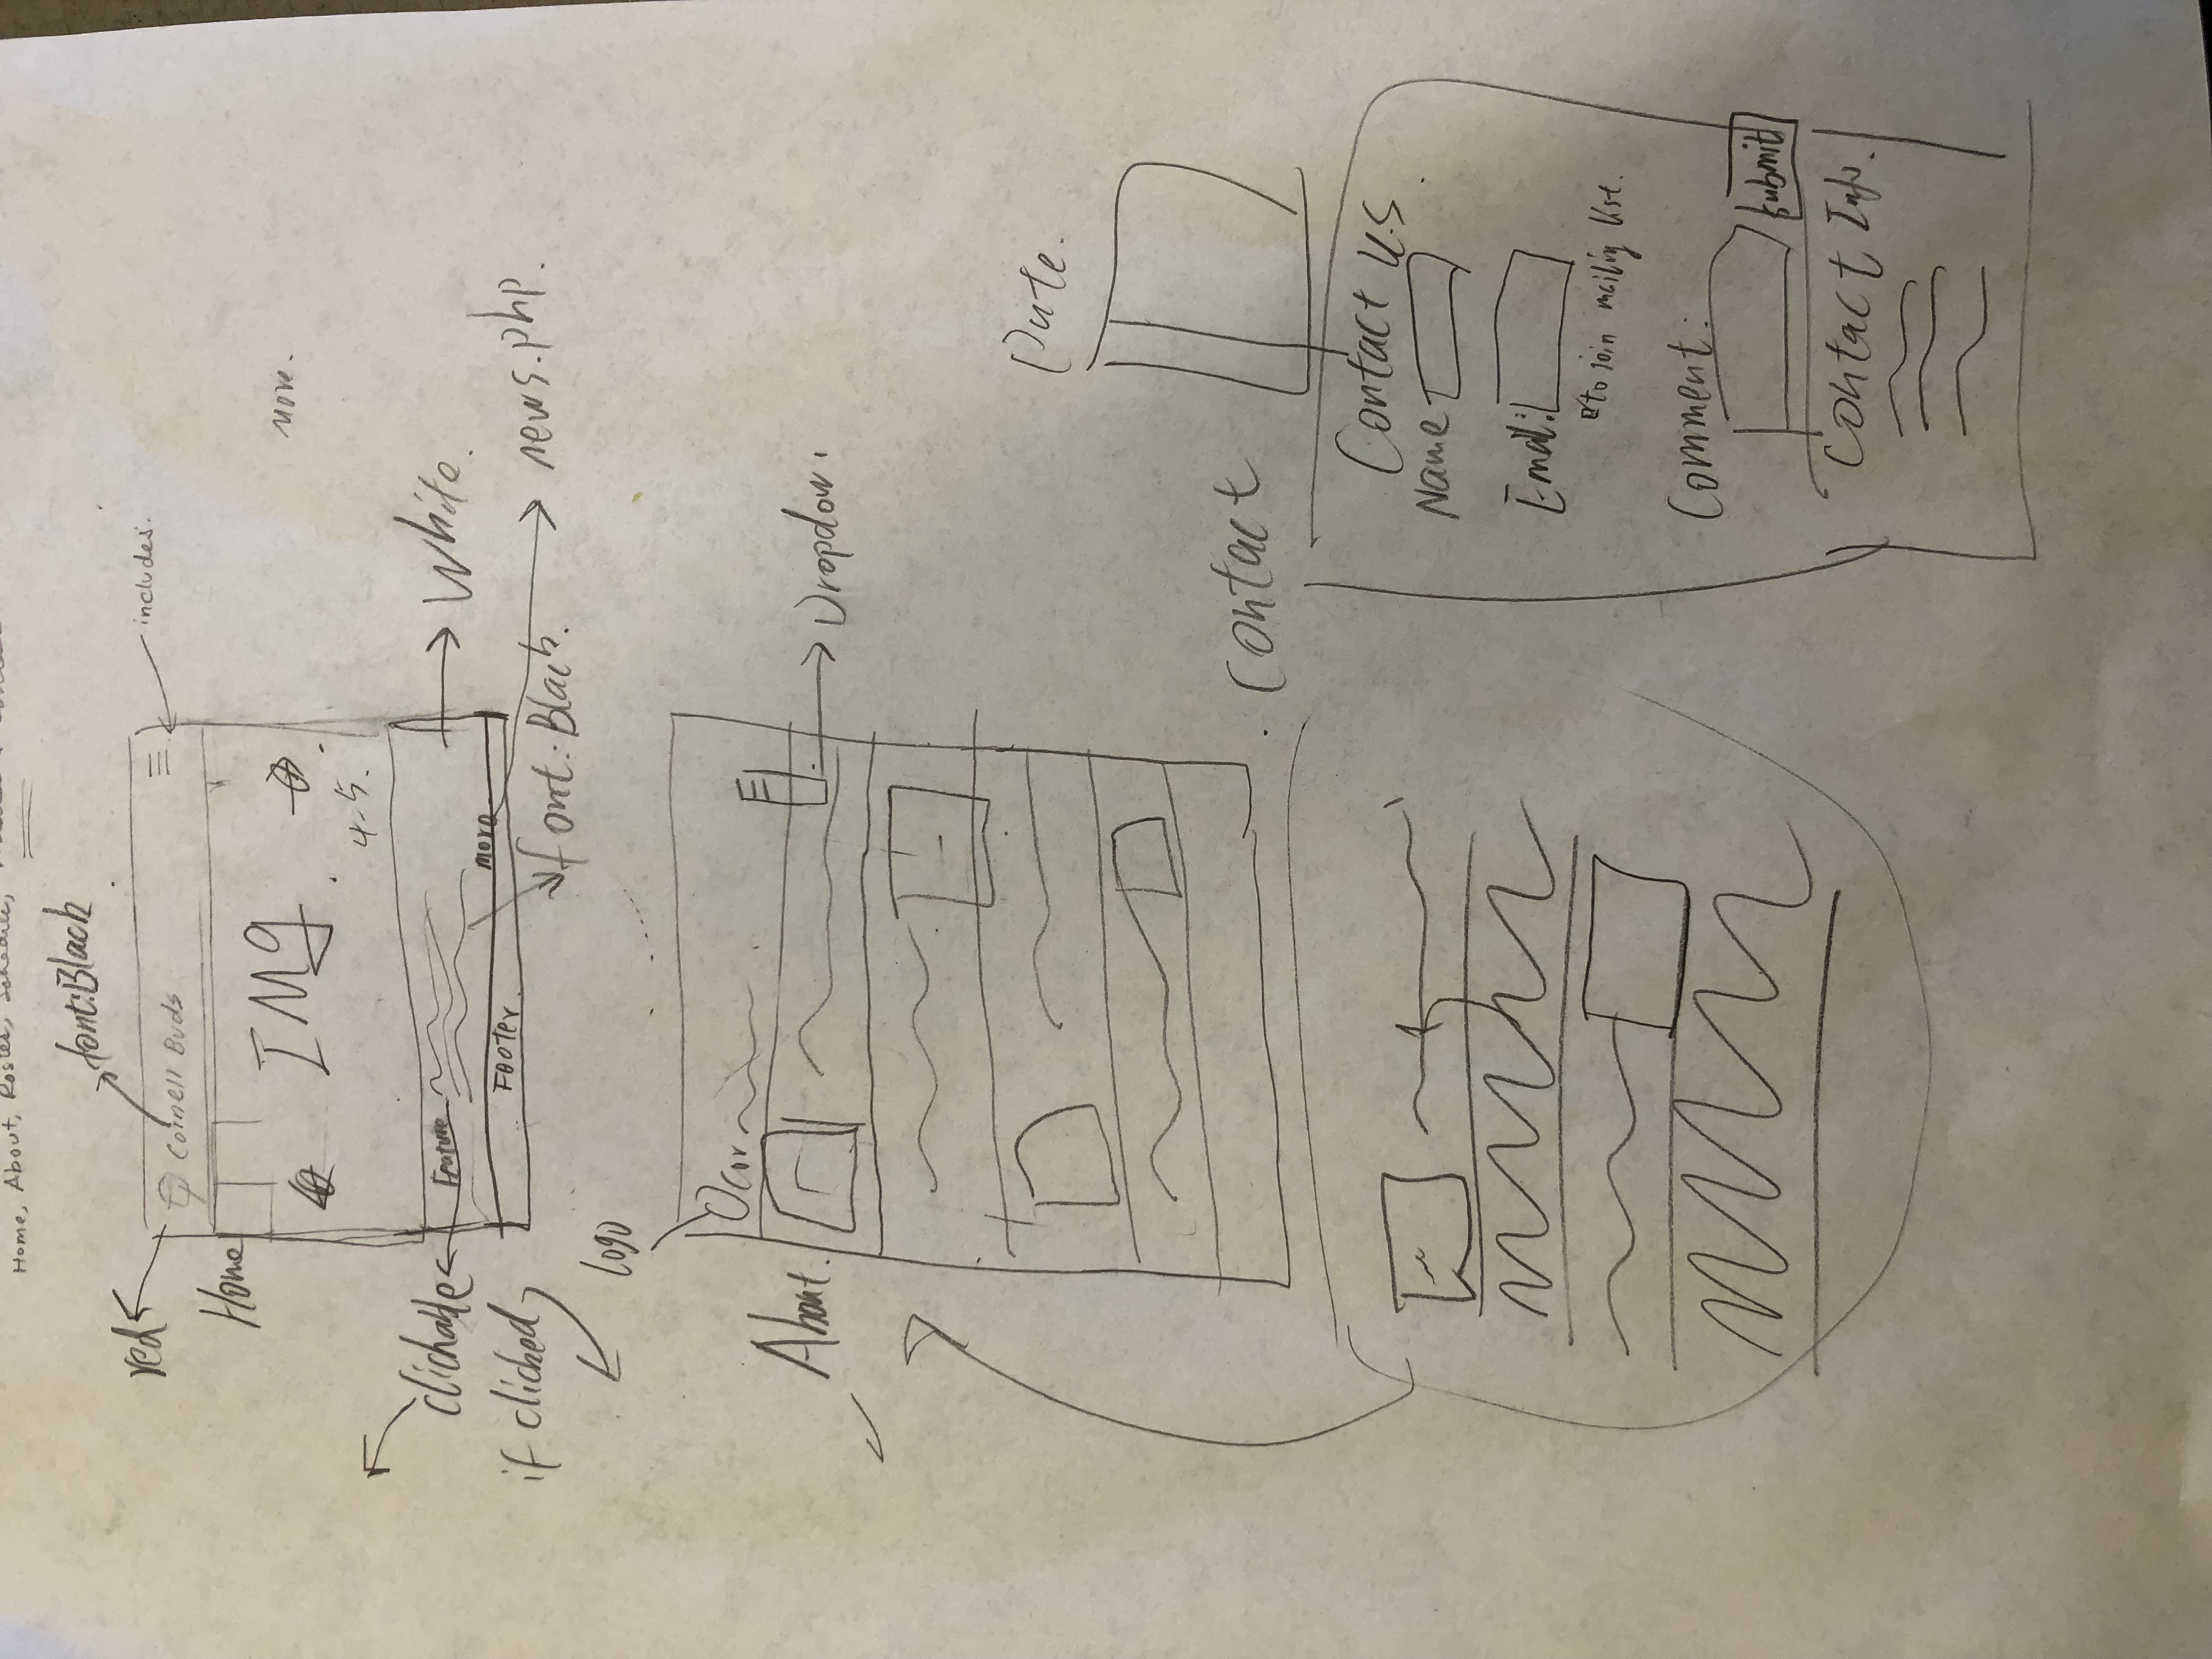 Home, About, Roster, Schedule,
font:Black
red
includes.
Cornell Buds
Home
IMg
more.
4-5.
clickable
Feature
White.
more
if clicked
Footer
news.php.
font:Black.
logo
Cor
About.
Dropdow
Contact
Contact us
Name
Email:
to join mailing list.
Comment:
submit
Contact Info.